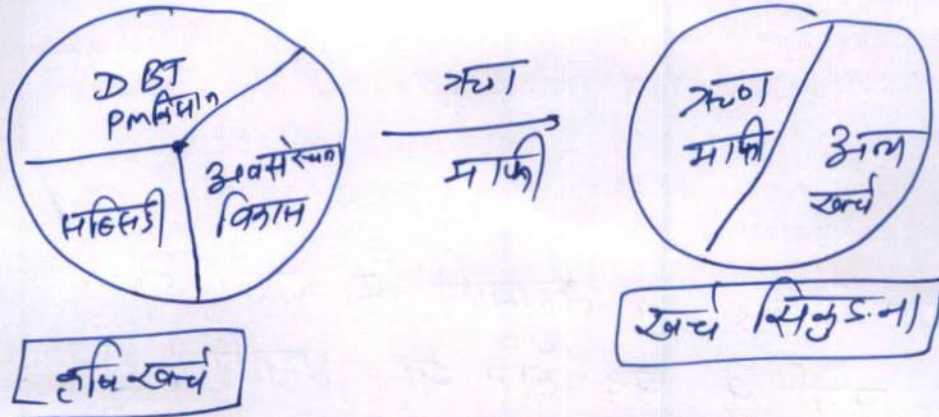 DBT
PM किसान
सब्सिडी
अवसंरचना
विकास
कृषि खर्च
ऋण
माफी
ऋण
माफी
अन्य
खर्च
खर्च सिकुड़ना